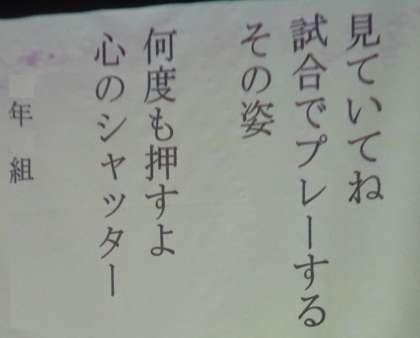 見ていてね
試合でプレーする
その姿
何度も押すよ
心のシャッター
年 組